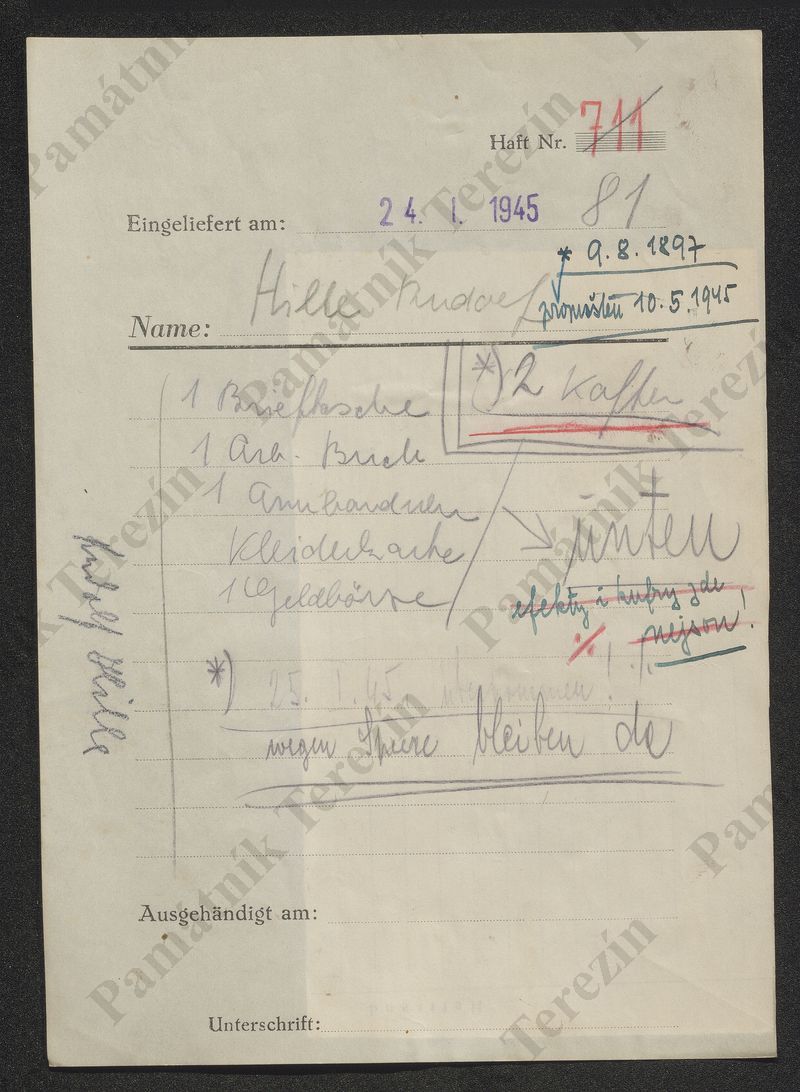 Haft Nr. 711
81
Eingeliefert am: 24. I. 1945
* 9.8.1897
propuštěn 10.5.1945
Name: Hille Rudolf
*) 2 Koffer
1 Brieftasche
1 Arb. Buch
1 Armbanduhr
Kleiderkarte
1 Geldbörse
unten
efekty i kufry zde
nejsou!
Rudolf Hille
*) 25. I. 45 übernommen!
wegen Sperre bleiben da
Ausgehändigt am:
Unterschrift:
Památník Terezín